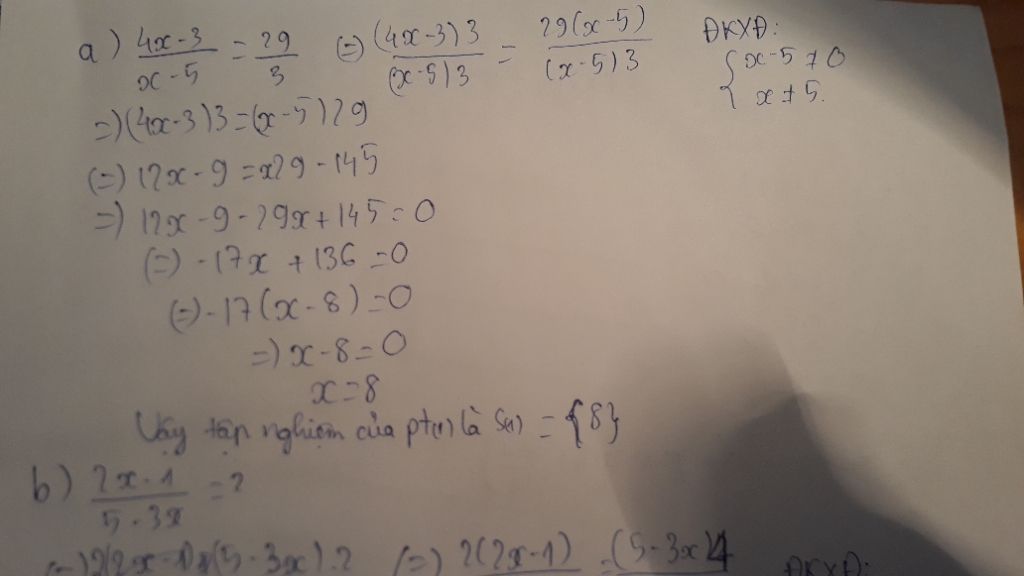 a) (4x-3)/(x-5) = 29/3 (=) ((4x-3)3)/((x-5)3) = (29(x-5))/((x-5)3) ĐKXĐ:
{ x-5 ≠ 0
x ≠ 5.
=) (4x-3)3=(x-5)29
(=) 12x - 9 = x29 - 145
=) 12x - 9 - 29x + 145 = 0
(=) -17x + 136 = 0
(=) -17(x - 8) = 0
=) x - 8 = 0
x = 8
Vậy tập nghiệm của pt(1) là S(1) = {8}
b) (2x-1)/(5-3x) = 2
(=) 2(2x-1) (5-3x).2 (=) 2(2x-1) = (5-3x)4 ĐKXĐ: